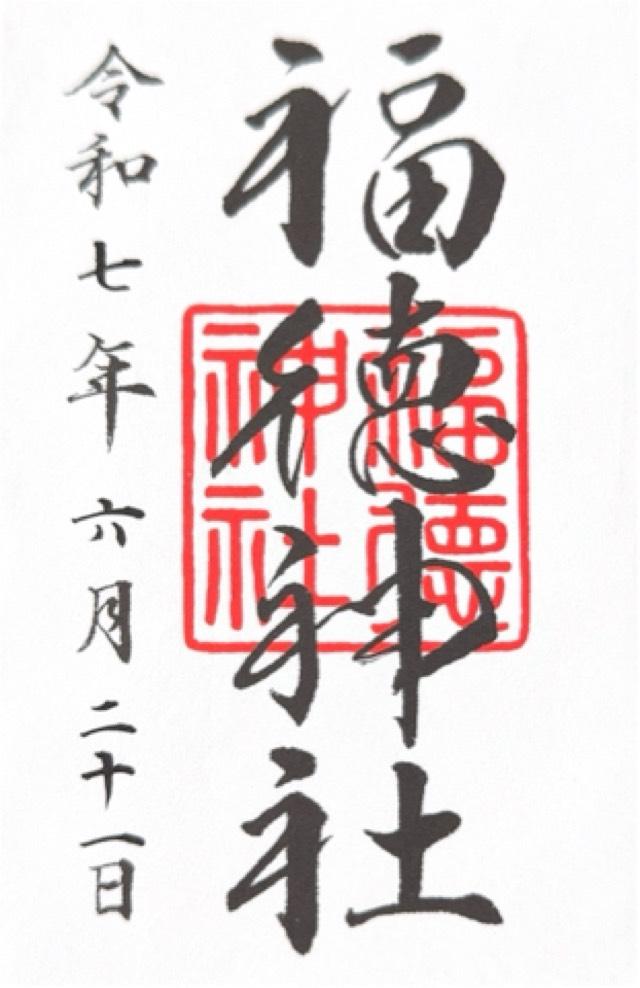 福徳神社
福徳神社
令和七年六月二十一日